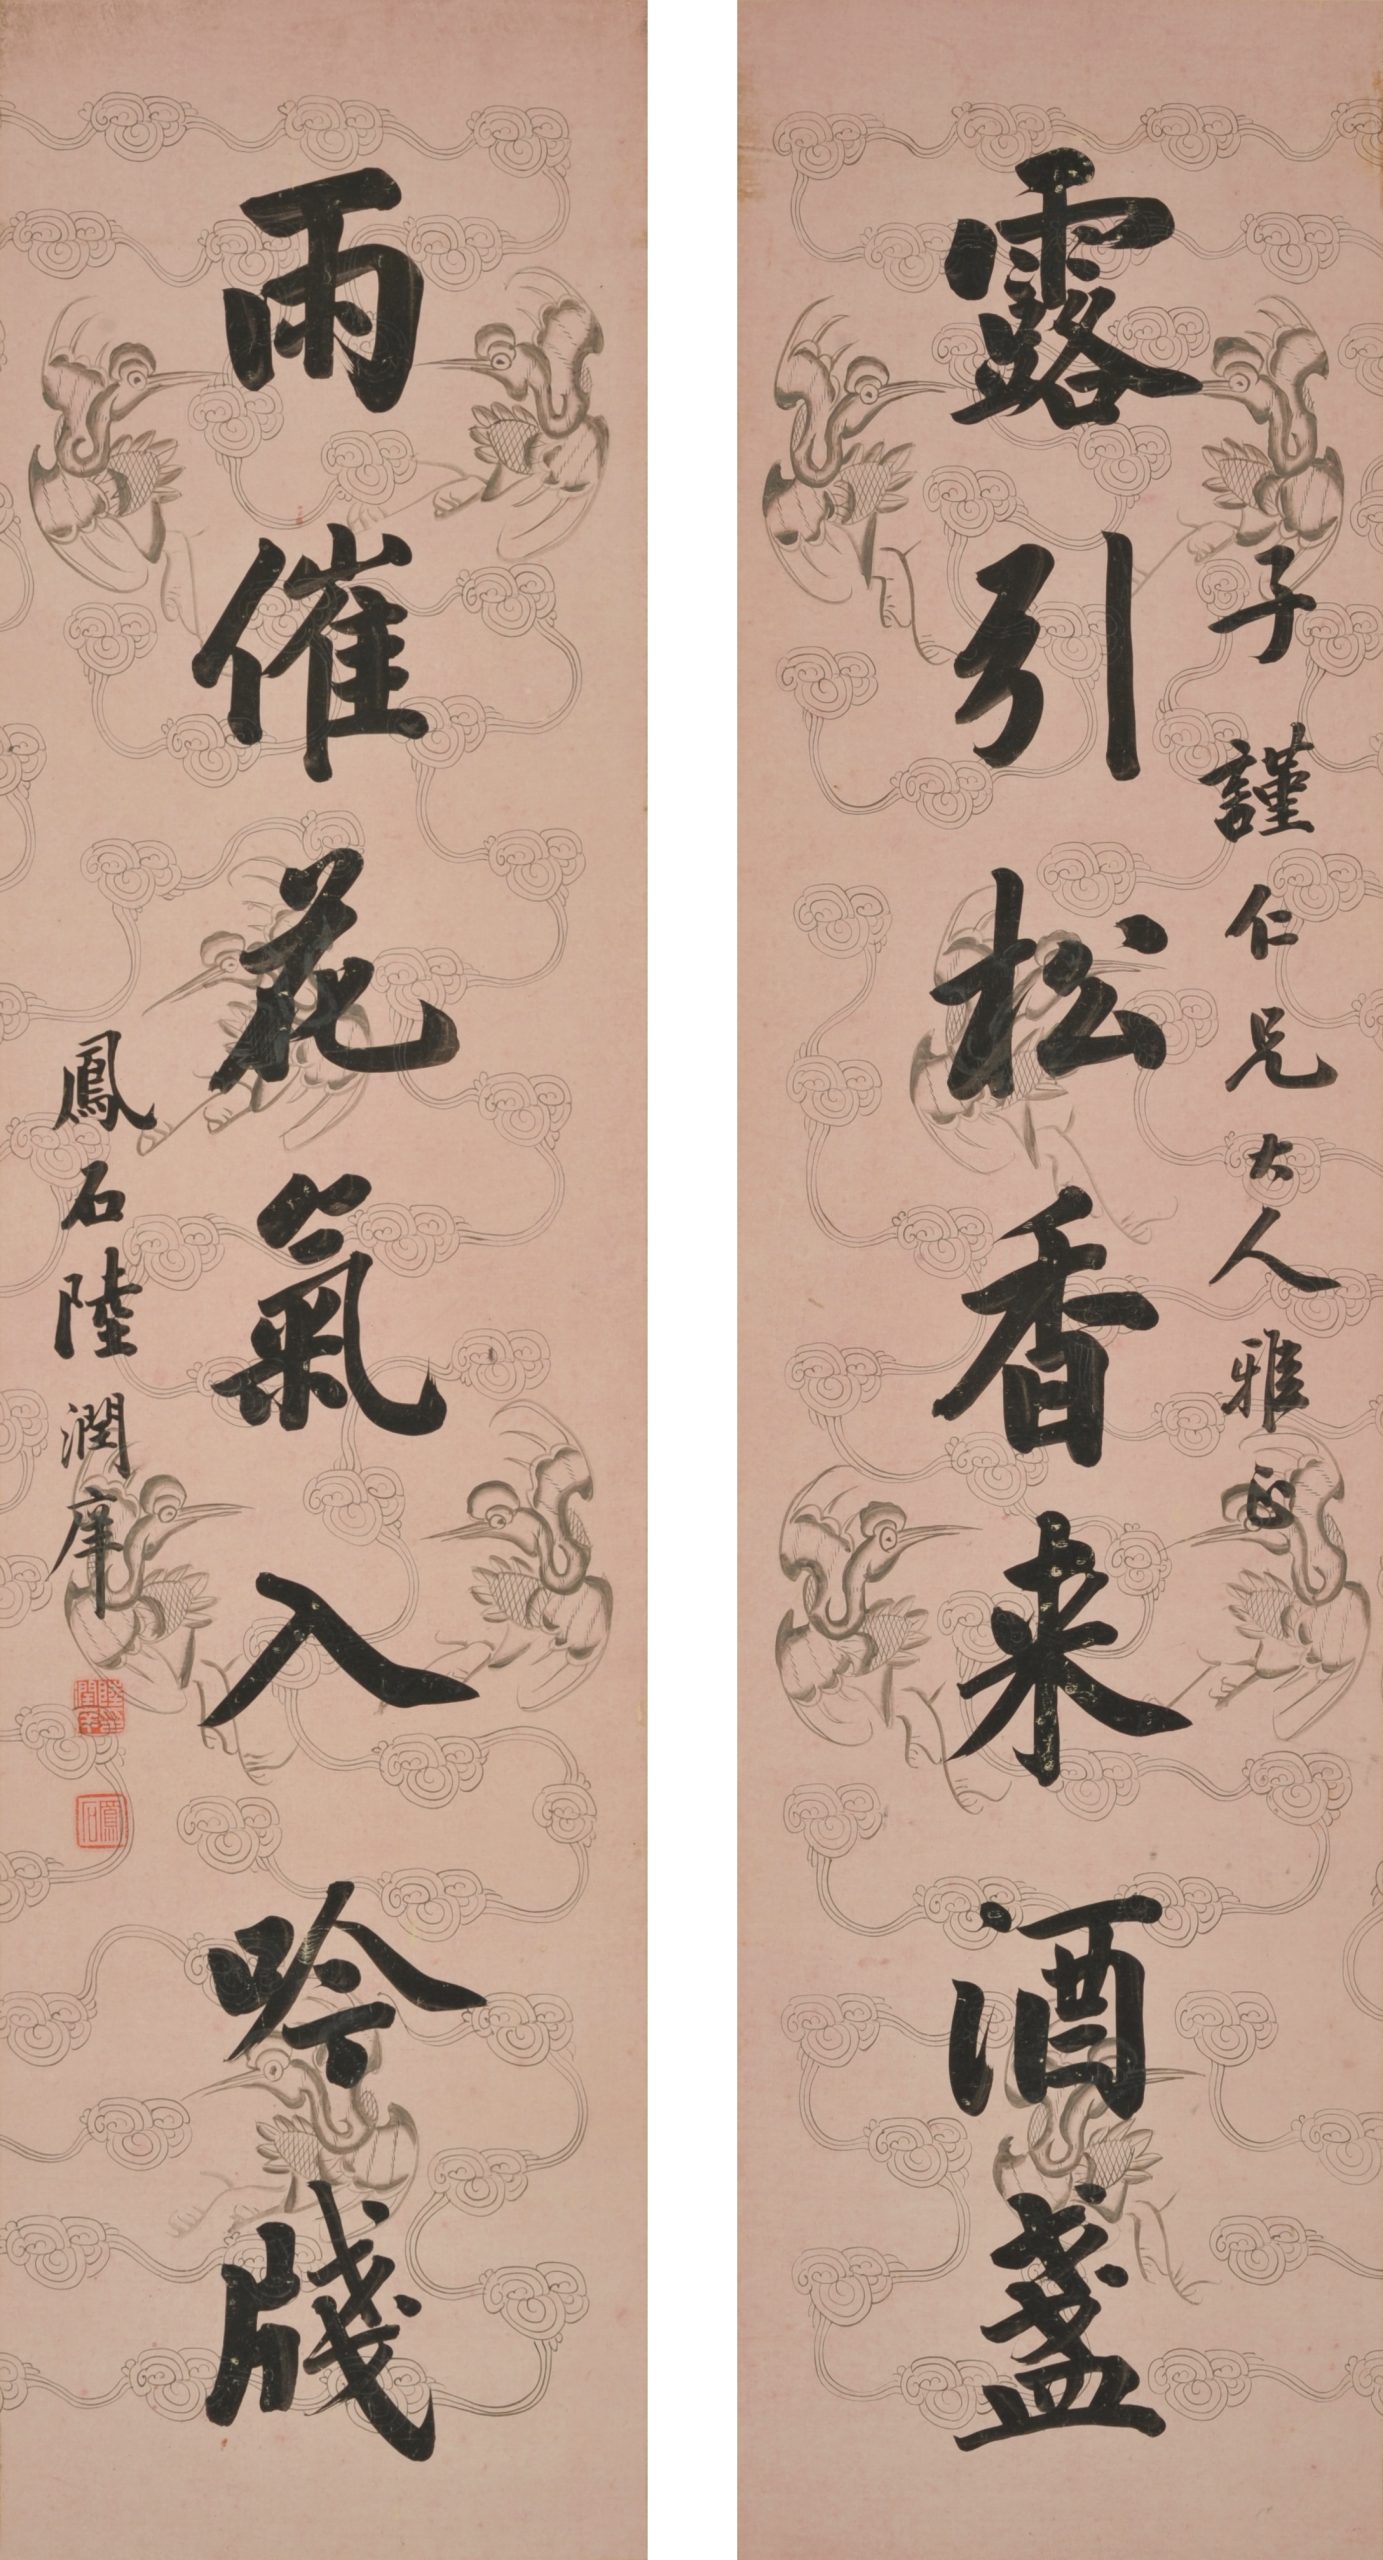 子謹仁兄大人雅正
露引松香来酒盞
雨催花氣入吟牋
鳳石陸潤庠
陸潤庠印
鳳石